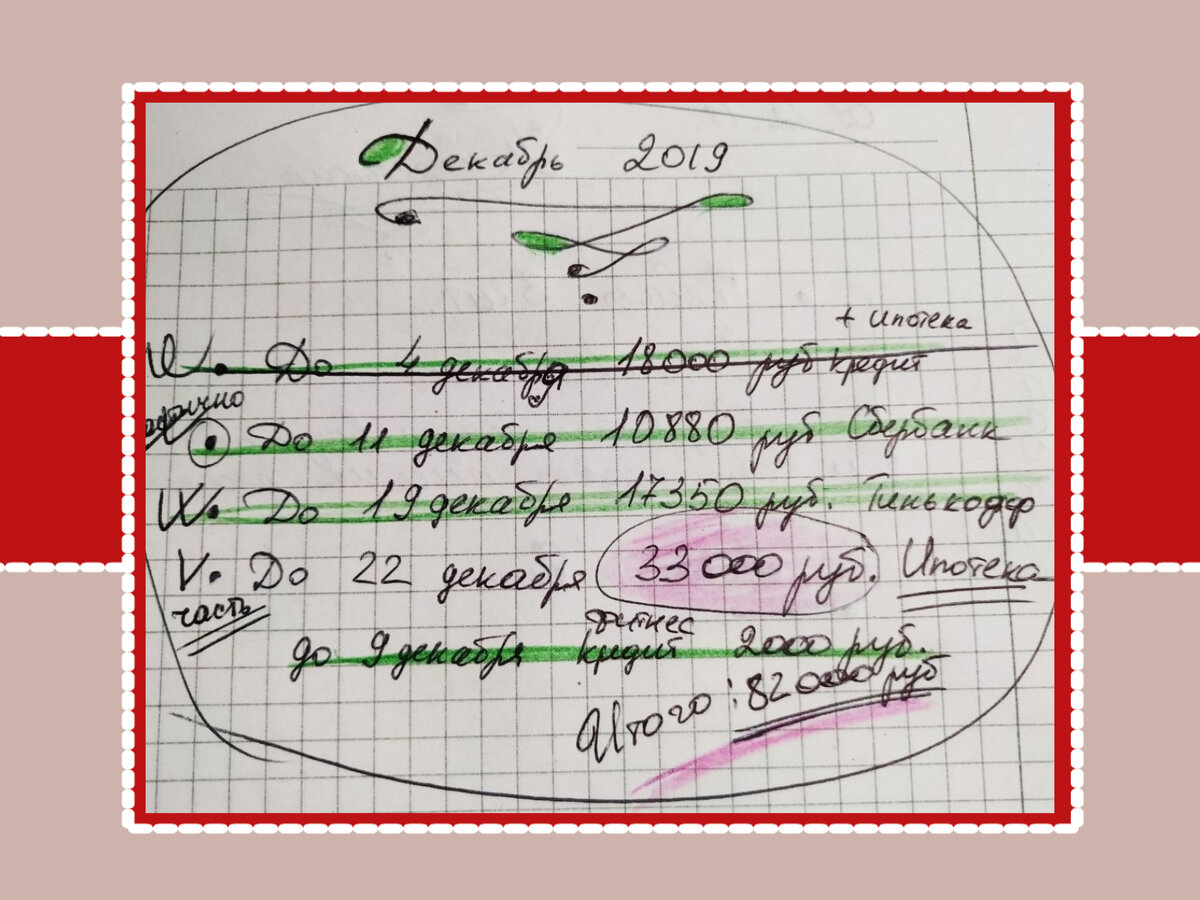 Декабрь 2019
+ ипотека
V. До 4 декабря 18000 руб кредит
До 11 декабря 10880 руб Сбербанк
V. До 19 декабря 17350 руб. Тинькофф
V. До 22 декабря 33000 руб. Ипотека
часть
фитнес
до 9 декабря кредит 2000 руб.
Итого: 82000 руб